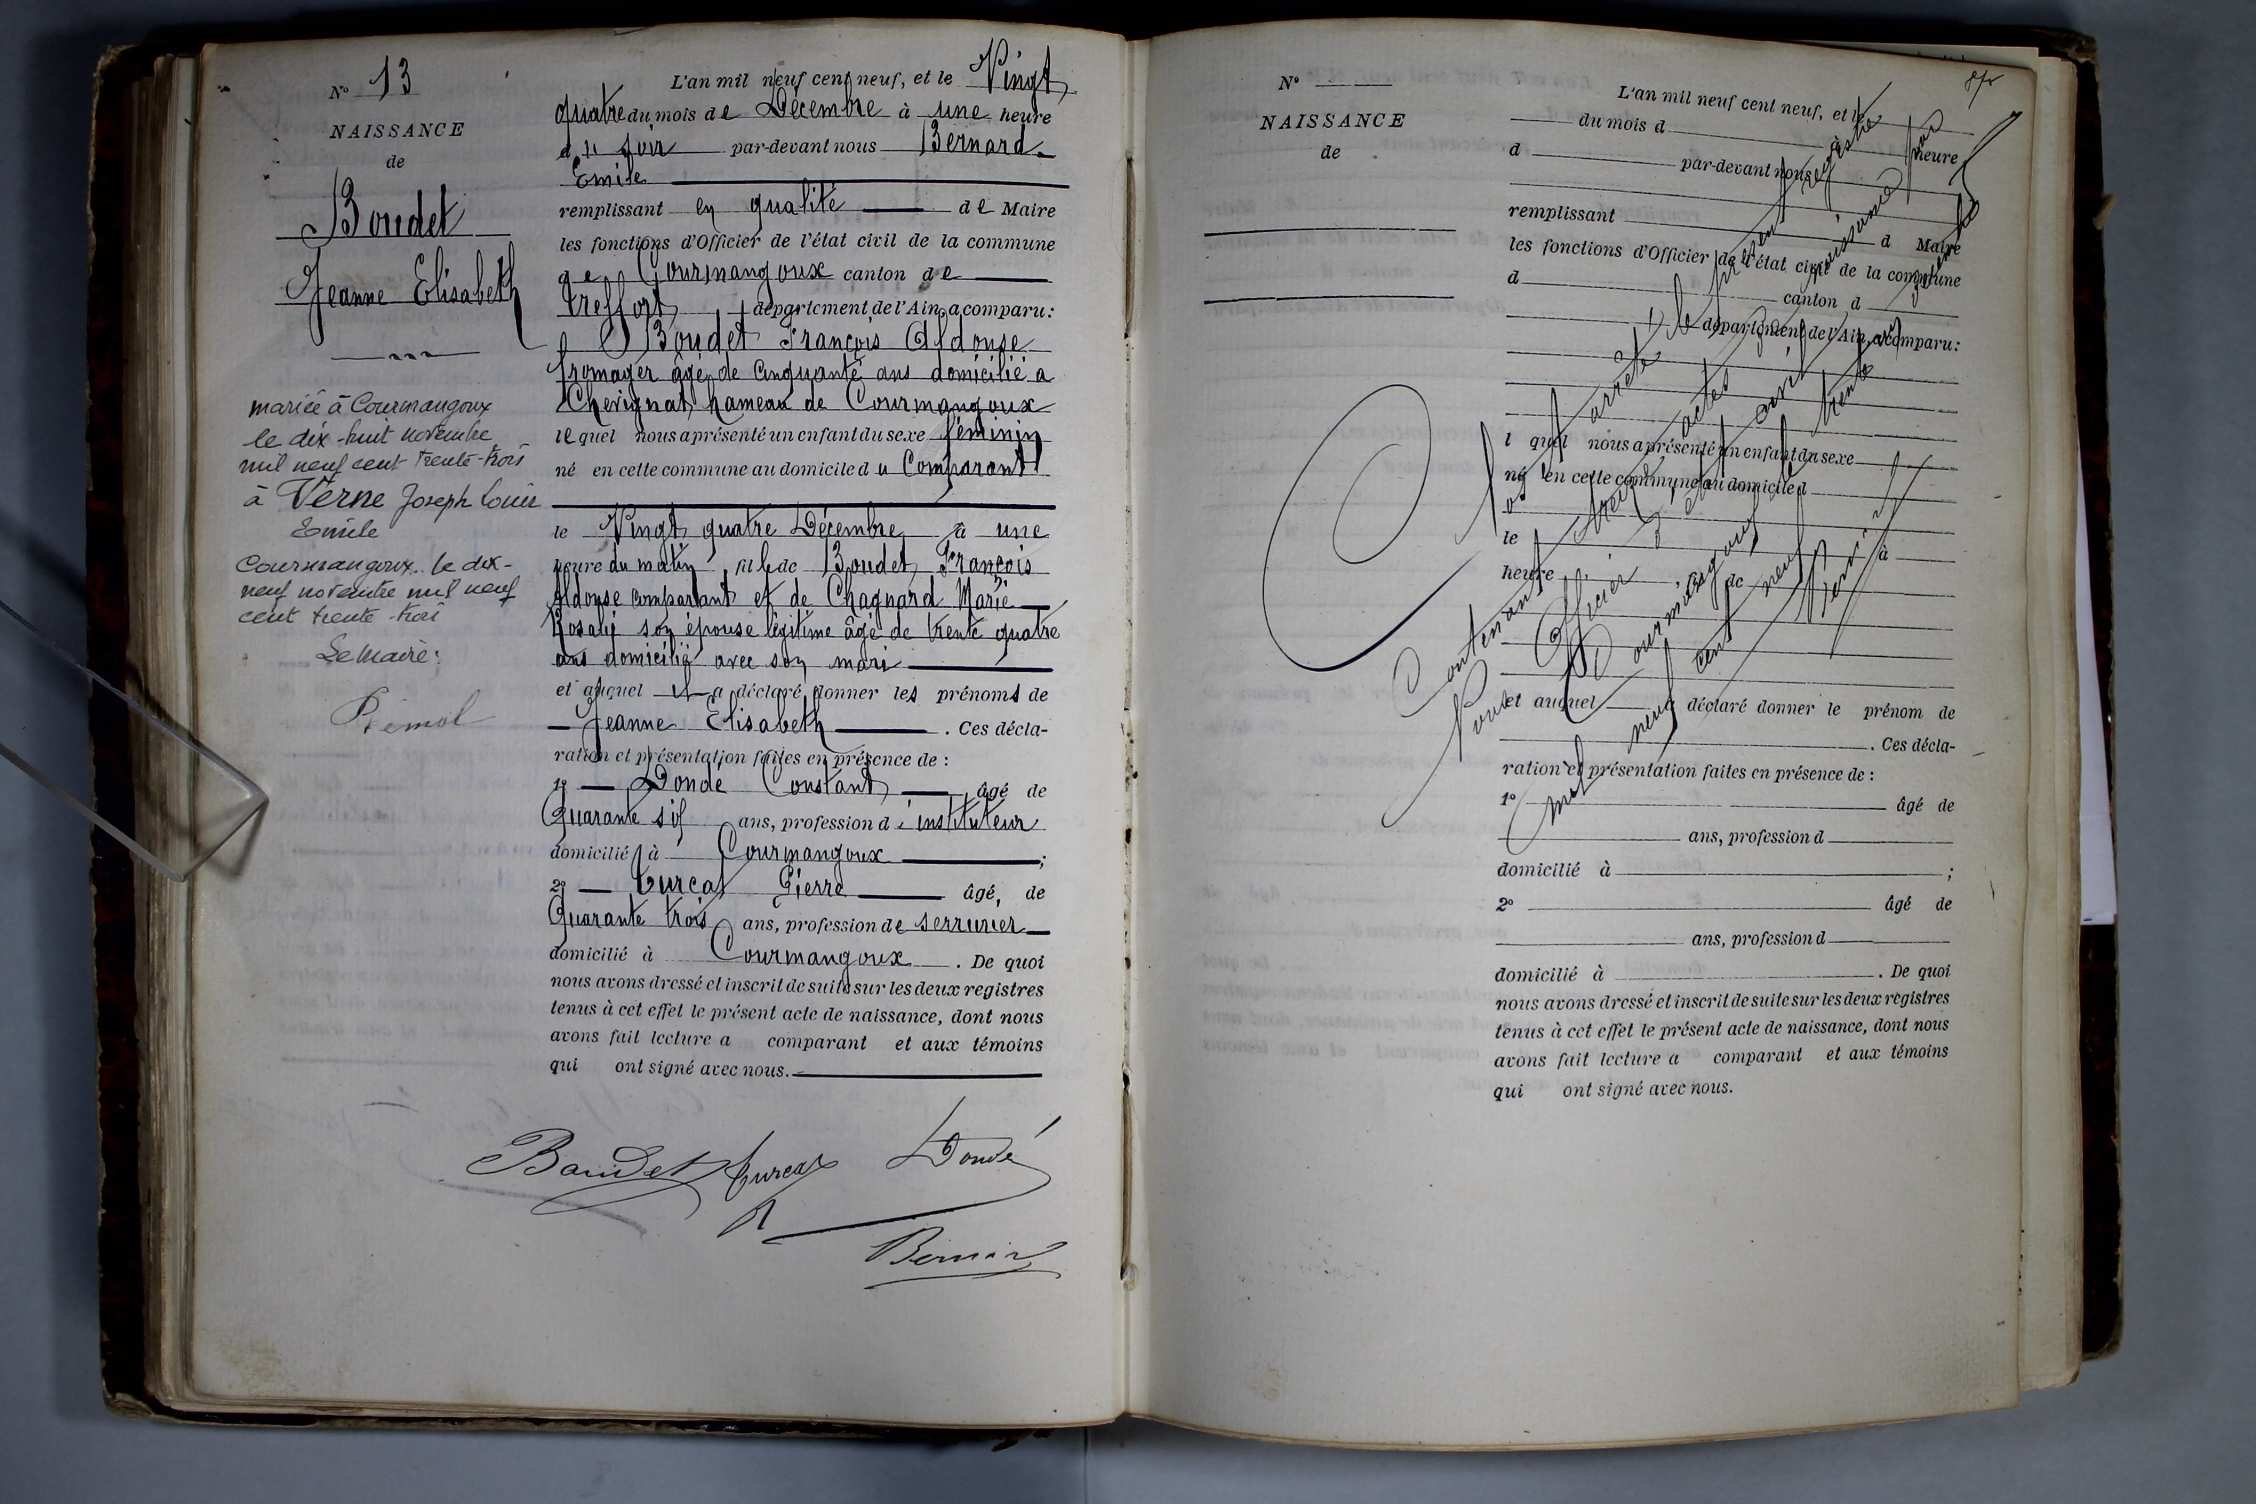 N° 13
NAISSANCE
de
Boudet
Jeanne Elisabeth
mariée à Courmangoux
le dix-huit novembre
mil neuf cent trente-trois
à Verne Joseph Louis
Emile
Courmangoux le dix-
neuf novembre mil neuf
cent trente-trois
Le Maire:
L'an mil neuf cent neuf, et le Vingt
quatre du mois de Décembre à une heure
du soir par-devant nous Bernard
Emile
remplissant en qualité de Maire
les fonctions d'Officier de l'état civil de la commune
de Courmangoux canton de
Treffort département de l'Ain, a comparu:
Boudet François Aldonse
fromager âgé de cinquante ans domicilié a
Chevignat hameau de Courmangoux
lequel nous a présenté un enfant du sexe féminin
né en cette commune au domicile du Comparant
le Vingt quatre Décembre à une
heure du matin, fille de Boudet François
Aldonse comparant et de Chagnard Marie
Rosalie son épouse légitime âgé de trente quatre
ans domicilié avec son mari
et auquel il a déclaré donner les prénoms de
Jeanne Elisabeth. Ces décla-
ration et présentation faites en présence de :
1° Donde Constant âgé de
Quarante six ans, profession d'instituteur
domicilié à Courmangoux;
2° Curcat Pierre âgé, de
Quarante trois ans, profession de serrurier
domicilié à Courmangoux. De quoi
nous avons dressé et inscrit de suite sur les deux registres
tenus à cet effet le présent acte de naissance, dont nous
avons fait lecture a comparant et aux témoins
qui ont signé avec nous.
Boudet Curcat Dondé
Bernard
N°
NAISSANCE
de
L'an mil neuf cent neuf, et le
du mois d à heure
d par-devant nous
remplissant d Maire
les fonctions d'Officier de l'état civil de la commune
d canton d
département de l'Ain, a comparu:
l quel nous a présenté un enfant du sexe
né en cette commune au domicile d
le à
heure de
et auquel déclaré donner le prénom de
. Ces décla-
ration et présentation faites en présence de :
1° âgé de
ans, profession d
domicilié à ;
2° âgé de
ans, profession d
domicilié à . De quoi
nous avons dressé et inscrit de suite sur les deux registres
tenus à cet effet le présent acte de naissance, dont nous
avons fait lecture a comparant et aux témoins
qui ont signé avec nous.
arrêté le présent registre
Contenant treize actes de naissance par
Nous Officier de l'état civil
Courmangoux trente
mil neuf cent neuf